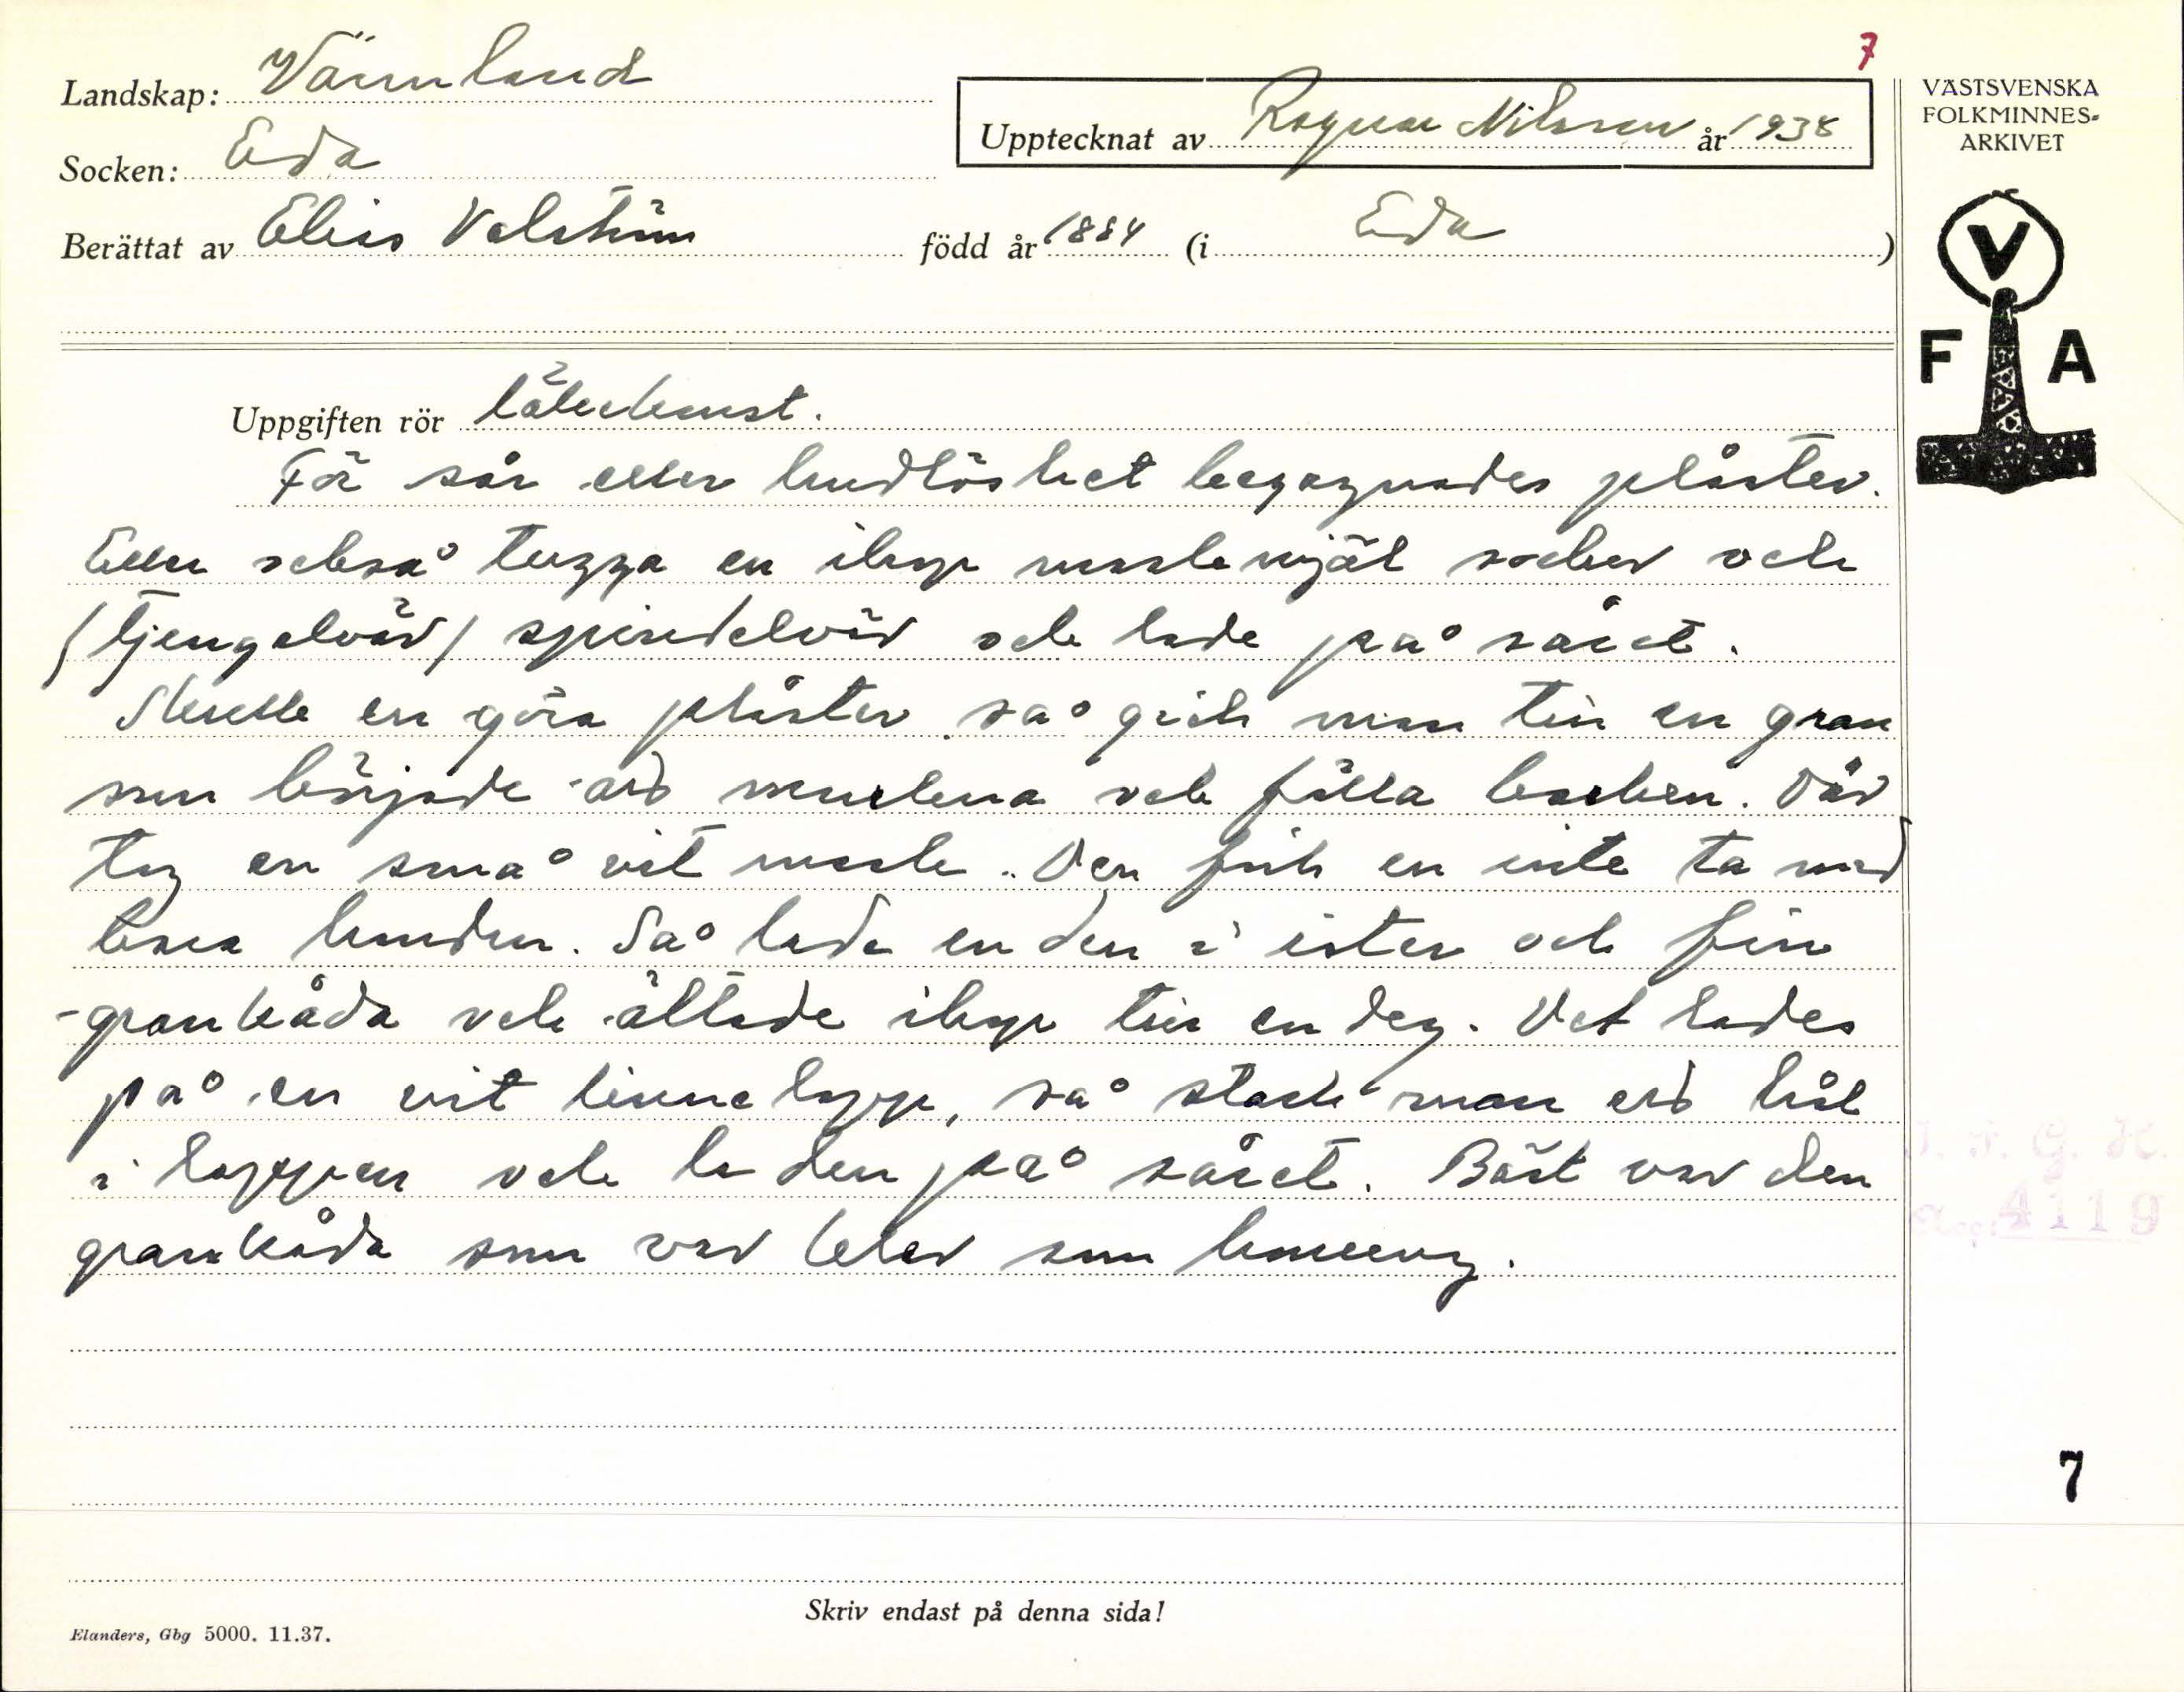 7
Landskap: Värmland
Socken: Eda
Upptecknat av Ragnar Nilsson år 1938
Berättat av Elis Valström född år 1884 (i Eda)
VÄSTSVENSKA
FOLKMINNES-
ARKIVET
V
F A
Uppgiften rör läkekonst.
För sår eller hudlöshet begagnades plåster.
Eller också tugga en ihop maskmjöl socker och
(tjengelväv) spindelväv och lade på såret.
Skulle en göra plåster så gick man till en gran
som började att murkna och fälla barken. Där
tog en små vit mask. Den fick en inte ta med
bara handen. Så lade en den i ister och fin
-grankåda och ältade ihop till en deg. Det lades
på en vit linnelapp, så stack man ett hål
i lappen och la den på såret. Bäst var den
grankåda som var klar som honung.
I. F. G. H.
Acc: 4119
7
Skriv endast på denna sida!
Elanders, Gbg 5000. 11.37.